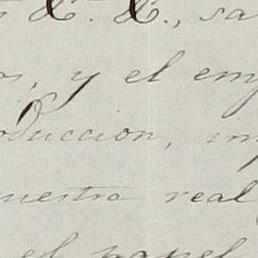 E. E., sa
os, y el emp
oduccion, im
uestra real
el papel